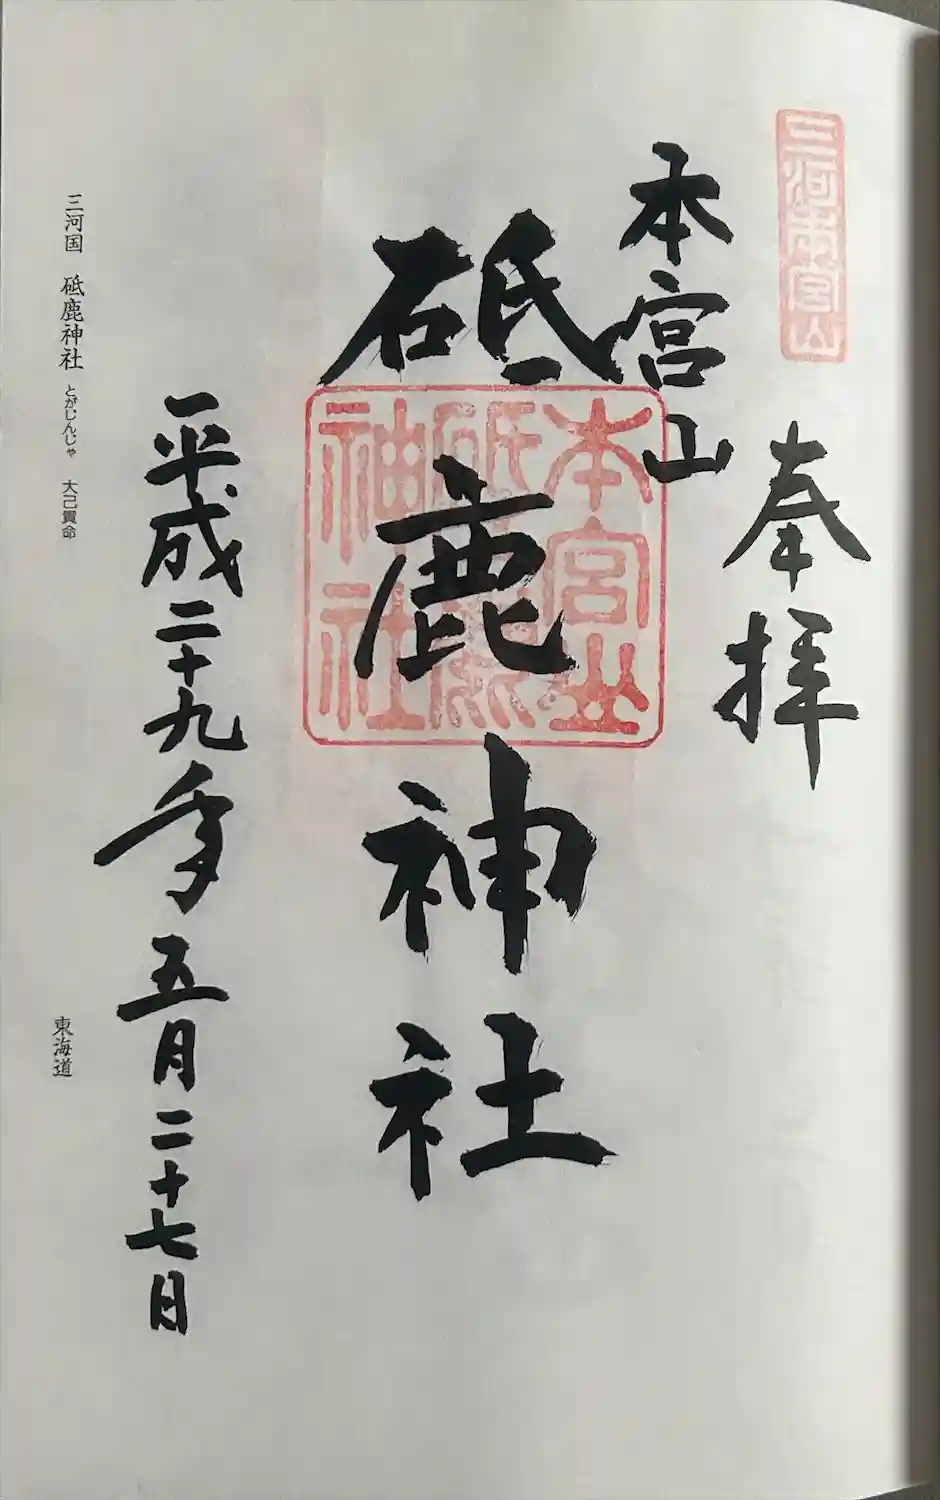 三河本宮山
奉拝
本宮山
砥鹿神社
本宮山
砥鹿
神社
平成二十九年五月二十七日
三河国 砥鹿神社 とがじんじゃ 大己貴命
東海道